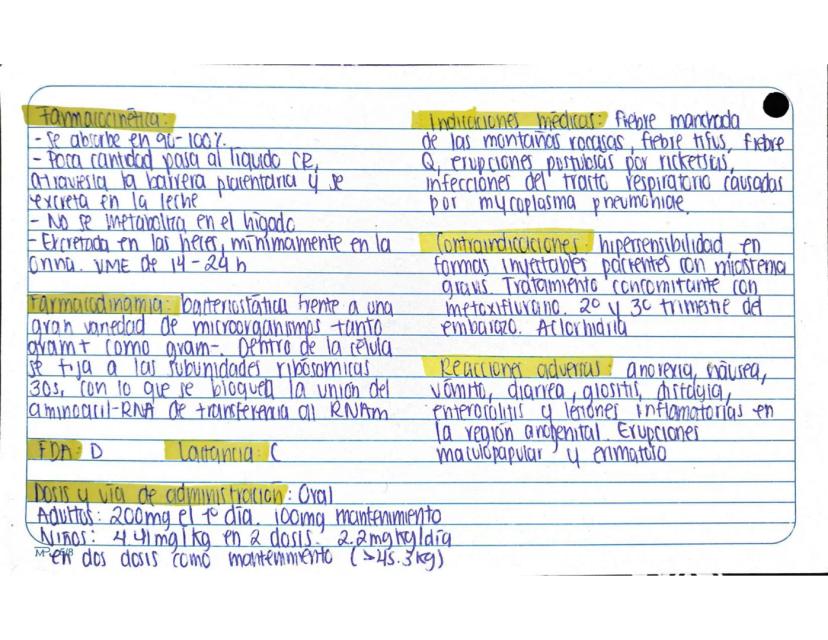 Farmacocinética:
- Se absorbe en 90-100%.
- Poca cantidad pasa al líquido CR,
atraviesa la barrera placentaria y se
excreta en la leche
- No se metaboliza en el hígado
- Excretada en las heces, mínimamente en la
orina. VME de 14-24h
Farmacodinamia: bacteriostática frente a una
gran variedad de microorganismos tanto
gram+ como gram-. Dentro de la célula
se fija a las subunidades ribosómicas
30s, con lo que se bloquea la unión del
aminoacil-RNA de transferencia al RNAm
FDA: D Lactancia: C
Dosis y vía de administración: Oral
Adultos: 200mg el 1º día. 100mg mantenimiento
Niños: 4.41mg/kg en 2 dosis. 2.2mg/kg/día
en dos dosis como mantenimiento (>45.3kg)
Indicaciones médicas: fiebre manchada
de las montañas rocosas, fiebre tifus, fiebre
Q, erupciones postubosas por ricketsias,
infecciones del tracto respiratorio causadas
por mycoplasma pneumoniae.
Contraindicaciones: hipersensibilidad, en
formas inyectables pacientes con miastemia
gravis. Tratamiento concomitante con
metoxiflurano. 2º y 3º trimestre del
embarazo. Aclorhidria
Reacciones adversas: anorexia, náusea,
vómito, diarrea, glositis, disfagia,
enterocolitis y lesiones inflamatorias en
la región anogenital. Erupciones
maculopapular y erimatoso